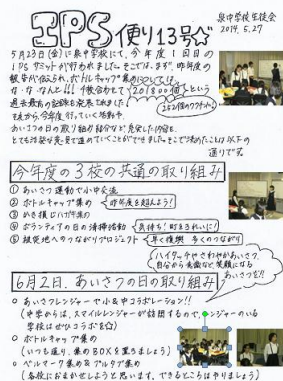 IPS便り13号☆
泉中学校生徒会
2014.5.27
5月23日(金)に泉中学校にて、今年度1回目の
IPSサミットが行われました。そこでは、まず、昨年度の
報告が伝えられ、ボトルキャップ集めについては、
な・な・なんと!!! 今年合わせて201800個という
過去最高の記録も発表されました
252個のワクチン
あいさつの日の取り組み紹介など、充実した内容を、
今年度の3校の共通の取り組み
① あいさつ運動で小中交流
② ボトルキャップ集め 昨年度を超えよう!
③ かき損じハガキ集め
④ ボランティアの日の清掃活動 気持ち!町もきれいに!
⑤ 被災地へのつながりプロジェクト 早く復興 多くのつながり
ハイタッチやさわやかあいさつ、
自分から元気など笑顔になる
あいさつを!!
6月2日、あいさつの日の取り組み
○ あいさつレンジャーで小&中コラボレーション!!
(中学からは、スマイルレンジャーが訪問するので、レンジャーのいる
学校はぜひコラボを☆)
○ ボトルキャップ集め
(いつも通り、集めBOXを置きましょう)
○ ベルマーク集め&プルタブ集め
(各校におまかせしようと思います。できるところはやりましょう)